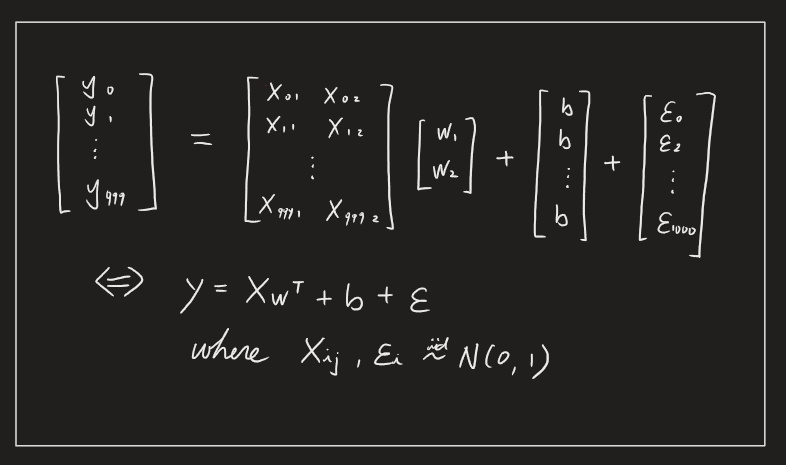 [y₀ y₁ ⋮ y₉₉₉] = [x₀₁ x₀₂ x₁₁ x₁₂ ⋮ x₉₉₉₁ x₉₉₉₂] [w₁ w₂] + [b b ⋮ b] + [ε₀ ε₂ ⋮ ε₁₀₀₀]
⇔ y = Xwᵀ + b + ε
where Xij , εi iid ~ N(0, 1)